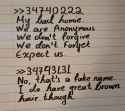 >>34740222
My bad home.
We are Anonymous
We don't forgive
We don't Forget
Expect us.
>>34743131
No, that's a fake name.
I do have great brown
hair though.